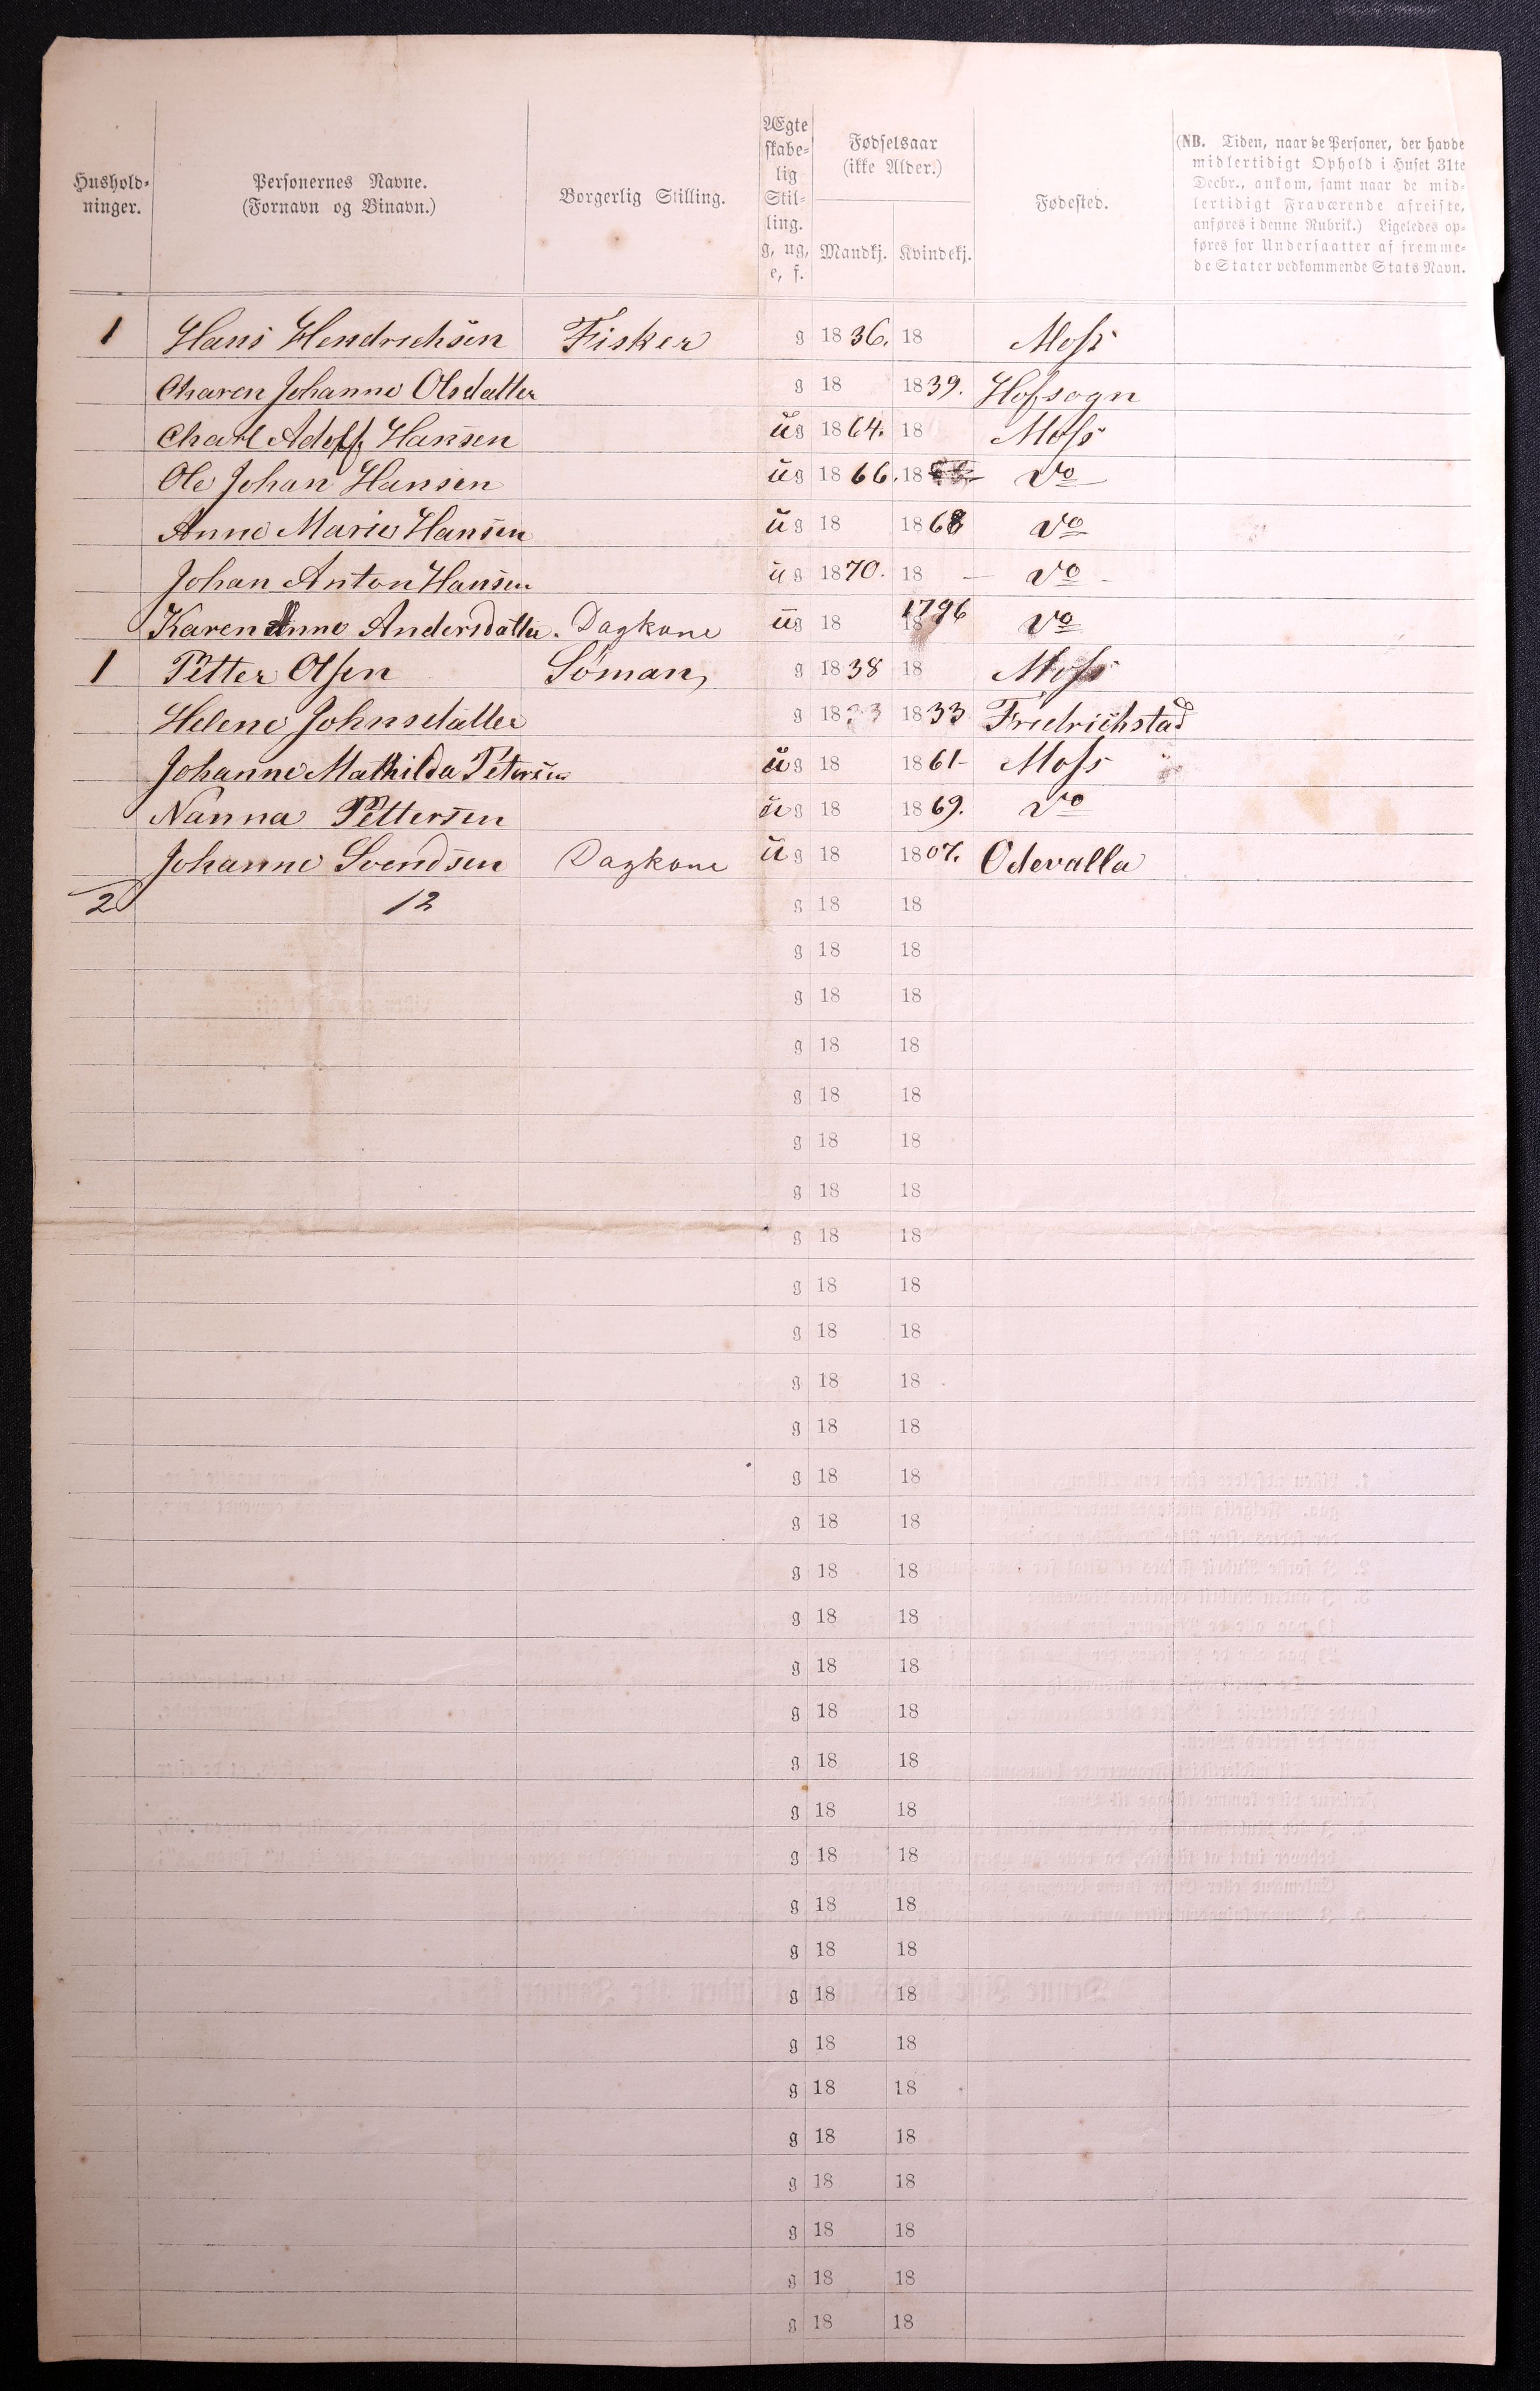 Hushold-
ninger.
Personernes Navne.
(Fornavn og Binavn.)
Borgerlig Stilling.
Ægte
skabe-
lig
Stil-
ling.
g, ug,
e, f.
Fødselsaar
(ikke Alder.)
Mandkj. Kvindekj.
Fødested.
(NB. Tiden, naar de Personer, der havde
midlertidigt Ophold i Huset 31te
Decbr., ankom, samt naar de mid-
lertidigt Fraværende afreiste,
anføres i denne Rubrik.) Ligeledes op-
føres for Undersaatter af fremme-
de Stater vedkommende Stats Navn.
1 Hans Hendrichsen Fisker g 1836. 18 Moss
Charen Johanne Olsdatter g 18 1839. Hofsogn
Charl Adolff Hansen ug 1864. 18 Moss
Ole Johan Hansen ug 1866. 18 Do
Anne Marie Hansen ug 18 1868 Do
Johan Anton Hansen ug 1870. 18 Do
Karen Anne Andersdatter. Dagkone ug 18 1796 Do
1 Petter Olsen Søman, g 1838 18 Moss
Helene Johnsdatter g 1833 1833 Fredrichstad
Johanne Mathilda Petersen ug 18 1861 Moss
Nanna Pettersen ug 18 1869. Do
Johanne Svendsen Dagkone ug 18 1807. Odevalla
2 12 g 18 18
g 18 18
g 18 18
g 18 18
g 18 18
g 18 18
g 18 18
g 18 18
g 18 18
g 18 18
g 18 18
g 18 18
g 18 18
g 18 18
g 18 18
g 18 18
g 18 18
g 18 18
g 18 18
g 18 18
g 18 18
g 18 18
g 18 18
g 18 18
g 18 18
g 18 18
g 18 18
g 18 18
g 18 18
g 18 18
g 18 18